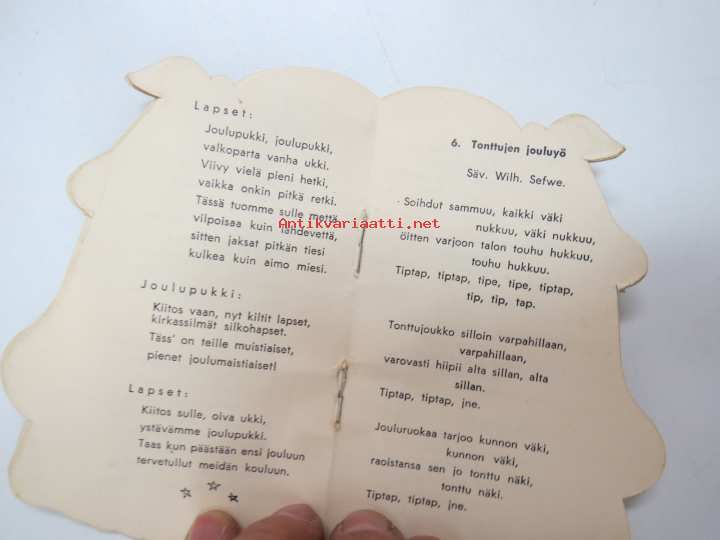 Lapset:
Joulupukki, joulupukki,
valkoparta vanha ukki.
Viivy vielä pieni hetki,
vaikka onkin pitkä retki.
Tässä tuomme sulle mettä
vilpoisaa kuin lähdevettä,
sitten jaksat pitkän tiesi
kulkea kuin aimo miesi.
Joulupukki:
Kiitos vaan, nyt kiltit lapset,
kirkassilmät silkohapset.
Täss' on teille muistiaiset,
pienet joulumaistiaiset!
Lapset:
Kiitos sulle, oiva ukki,
ystävämme joulupukki.
Taas kun päästään ensi jouluun
tervetullut meidän kouluun.
6. Tonttujen jouluyö
Säv. Wilh. Sefwe.
Soihdut sammuu, kaikki väki
nukkuu, väki nukkuu,
öitten varjoon talon touhu hukkuu,
touhu hukkuu.
Tiptap, tiptap, tipe, tipe, tiptap,
tip, tip, tap.
Tonttujoukko silloin varpahillaan,
varpahillaan,
varovasti hiipii alta sillan, alta
sillan.
Tiptap, tiptap, jne.
Jouluruokaa tarjoo kunnon väki,
kunnon väki,
raoistansa sen jo tonttu näki,
tonttu näki.
Tiptap, tiptap, jne.
Antikvariaatti.net